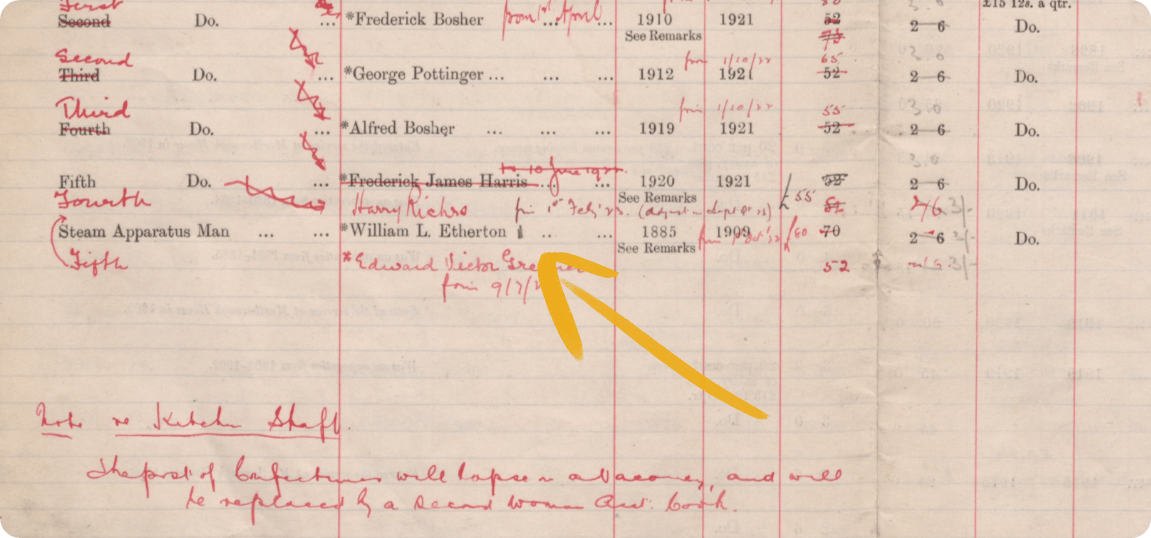 First £15 12s. a qtr.
Second Do. ... *Frederick Bosher from 1st April ... ... 1910 1921 52 2 6 Do.
See Remarks
Second from 1/10/22 65 3.0
Third Do. ... *George Pottinger ... ... ... 1912 1921 52 2 6 Do.
Third from 1/10/22 55 3.0
Fourth Do. ... *Alfred Bosher ... ... ... 1919 1921 52 2 6 Do.
to 10 June 192
Fifth Do. ... *Frederick James Harris ... ... 1920 1921 52 2 6 Do.
See Remarks
Fourth Harry from 1st Feby '23. 55 52 2/6 3/-
Steam Apparatus Man ... ... *William L. Etherton ... ... 1885 1909 60 70 2 6 3/- Do.
See Remarks
Fifth *Edward Victor 52 3/-
from 9/7/2
Note re Kitchen Staff.
The post of Confectioner will lapse on a vacancy, and will
be replaced by a second woman Asst. Cook.